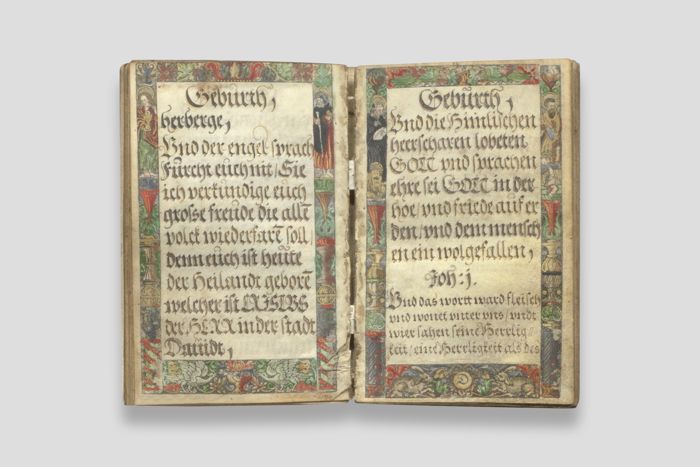 Gebürth,
herberge,
Vnd der engel sprach
Fürcht eüch nit/ Sie
ich verkündige eüch
grosse freüde die allē
volck wiederfarē soll/
denn eüch ist heüte
der Heilandt geborē
welcher ist
der HERR in der stadt
Dauidt,
Gebürth,
Vnd die Himlischen
heerscharen lobeten
GOTT vnd sprachen
ehre sei GOTT in der
höe/ vnd friede auf er
den/ vnd dem mensch
en ein wolgefallen,
Joh: j.
Vnd das wortt ward fleisch
vnd wonet vnter vns/ vndt
wier sahen seine Herrlig//
keit/ eine Herrligkeit als des